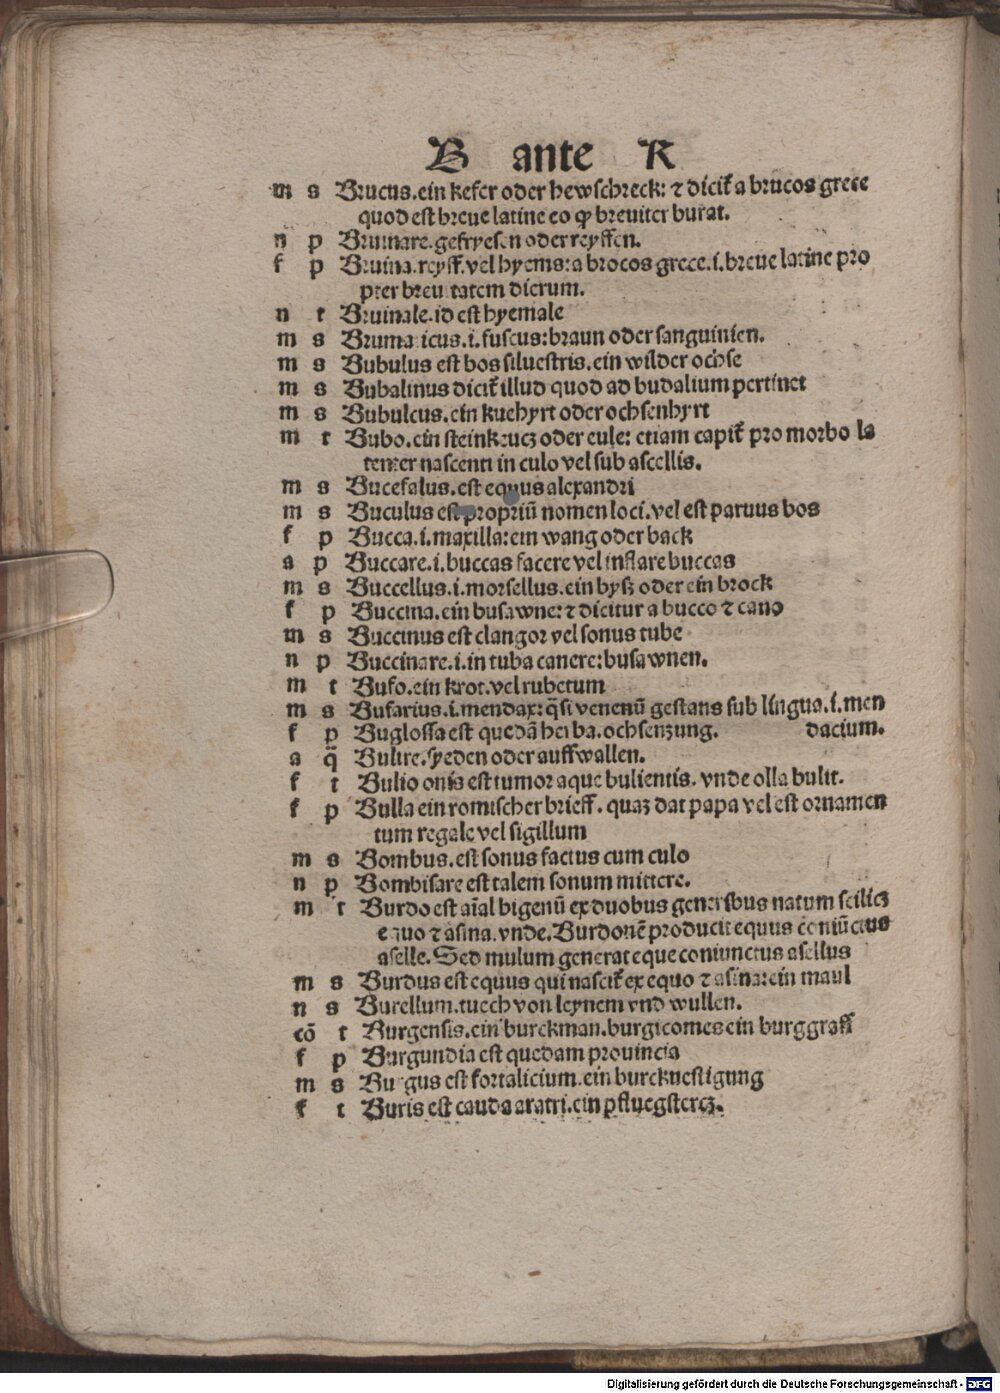 B ante R
m s Brucus.ein kefer oder hewschreck: ⁊ dicit᷑ a brucos grece
quod est breue latine eo ꝙ breuiter durat.
n p Bruinare.gefryesen oder reyffen.
f p Bruina.reyff.vel hyems:a brocos grece.i.breue latine pro
pter breuitatem dierum.
n t Bruinale.id est hyemale
m s Brumaticus.i.fuscus:braun oder sanguinien.
m s Bubulus est bos siluestris.ein wilder ochse
m s Bubalinus dicit᷑ illud quod ad budalium pertinet
m s Bubulcus.ein kuehyrt oder ochsenhyrt
m t Bubo.ein steinkrucz oder eule: etiam capit᷑ pro morbo la
tenter nascenti in culo vel sub ascellis.
m s Bucefalus.est equus alexandri
m s Buculus est propriū nomen loci.vel est paruus bos
f p Bucca.i.maxilla:ein wang oder back
a p Buccare.i.buccas facere vel inflare buccas
m s Buccellus.i.morsellus.ein byß oder ein brock
f p Buccina.ein busawne:⁊ dicitur a bucco ⁊ cano
m s Buccinus est clangor vel sonus tube
n p Buccinare.i.in tuba canere:busawnen.
m t Bufo.ein krot.vel rubetum
m s Bufarius.i.mendax:q̄si venenū gestans sub lingua.i.men
f p Buglossa est quedā herba.ochsenzung. dacium.
a q̄ Bulire.syeden oder auffwallen.
f t Bulio onis est tumor aque bulientis.vnde olla bulit.
f p Bulla ein romischer brieff.quaʒ dat papa vel est ornamen
tum regale vel sigillum
m s Bombus.est sonus factus cum culo
n p Bombisare est talem sonum mittere.
m t Burdo est aīal bigenū ex duobus generibus natum scilicʒ
equo ⁊ asina.vnde.Burdonē producit equus cōniūctus
aselle.Sed mulum generat eque coniunctus asellus
m s Burdus est equus qui nascit᷑ ex equo ⁊ asina:ein maul
n s Burellum.tuech von leynem vnd wullen.
cō t Burgensis.ein burckman.burgicomes ein burggraff
f p Burgundia est quedam prouincia
m s Burgus est fortalicium.ein burckuestigung
f t Buris est cauda aratri.ein pfluegstercz.
Digitalisierung gefördert durch die Deutsche Forschungsgemeinschaft - DFG